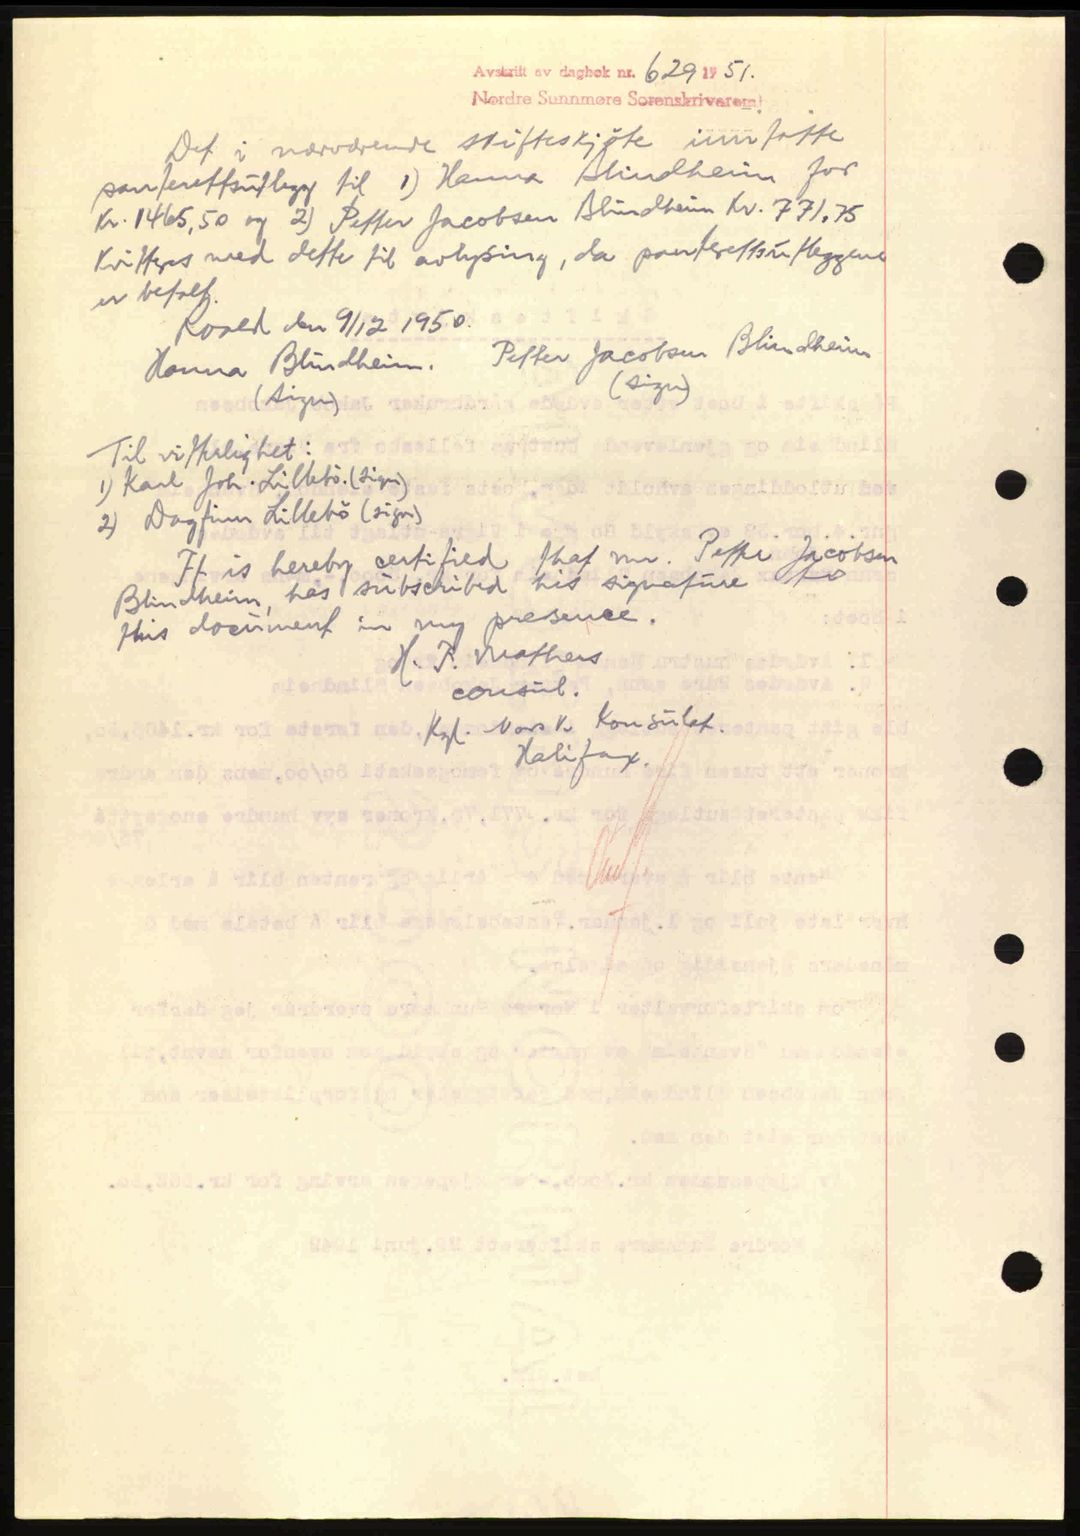 Avskrift av dagbok nr. 629 1951.
Nordre Sunnmøre Sorenskriverembe
Det i nærværende skifteskjöte innfatte
panterettsutlegg til 1) Hanna Blindheim for
kr. 1465,50 og 2) Petter Jacobsen Blindheim kr. 771,75
kvitteres med dette til avlysing, da panterettsutleggene
er betalt.
Roald den 9/12 1950.
Hanna Blindheim. Petter Jacobsen Blindheim
(sign) (sign)
Til vitterlighet:
1) Karl Joh. Lillebö. (sign)
2) Dagfinn Lillebö (sign)
It is hereby certified that mr. Petter Jacobsen
Blindheim, has subscribed his signature to
this document in my presence.
H. F. Mathers
consul.
Kgl. Norsk Konsulat.
Halifax.